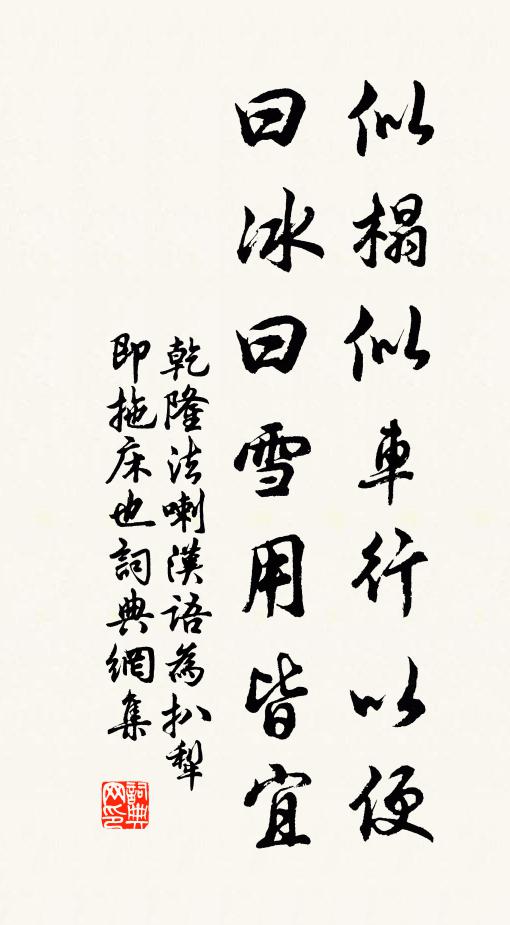 似榻似車行以便
曰冰曰雪用皆宜
乾隆法喇漢語為扒犁
即拖床也詞典網集
詞典网印